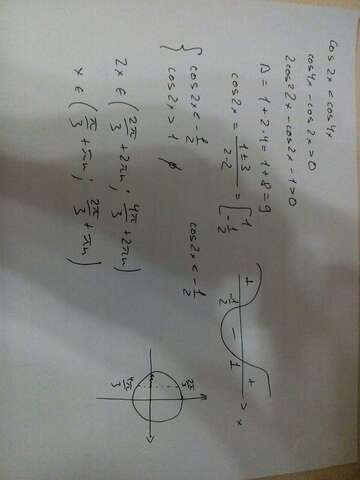 cos2x < cos4x
cos4x - cos2x > 0
2cos²2x - cos2x - 1 > 0
D = 1 + 2·4 = 1 + 8 = 9
cos2x = (1 ± 3)/(2·2) = [ 1 ; -1/2
+ -1/2 - 1 + x
{ cos2x < -1/2
cos2x > 1 ∅
cos2x < -1/2
2x ∈ (2π/3 + 2πn ; 4π/3 + 2πn)
x ∈ (π/3 + πn ; 2π/3 + πn)
2π/3
4π/3